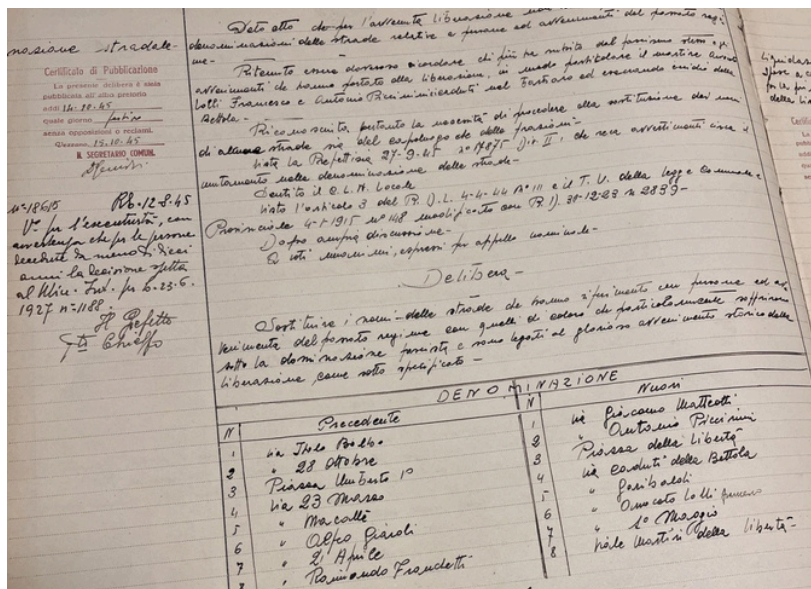 nazione stradale-
Certificato di Pubblicazione
La presente delibera è stata
pubblicata all'albo pretorio
addì 14.10.45
quale giorno festivo
senza opposizioni o reclami.
15.10.45
IL SEGRETARIO COMUN.
12-8-45
V° per l'esecutività, con
avvertenza che per le persone
decedute da meno di dieci
anni la decisione spetta
al Min. Int. per 6-23-6.
1927 n° 1188.
Il Prefetto
Dato atto che per l'avvenuta liberazione
denominazioni delle strade relative a persone ed avvenimenti del passato regi
me-
Ritenuto essere doveroso ricordare chi più ha subito dal fascismo
avvenimenti che hanno portato alla liberazione, in modo particolare il martire avvocato
Lolli Francesco e Antonio Piccinini nel ed esecrando eccidio della
Bettola-
Riconosciuta pertanto la necessità di procedere alla sostituzione dei nomi
di alcune strade sia del capoluogo che delle frazioni-
Vista la Prefettizia 27-9-45 n° 17875 Div II, che reca avvertimenti circa il
mutamento nelle denominazione delle strade-
Sentito il C.L.N. Locale
Visto l'articolo 3 del R.D.L. 4-4-44 n° 111 e il T.U. della legge Comunale e
Provinciale 4-1-1915 n° 148 modificato con R.D. 30-12-23 n 2839-
Dopo ampia discussione-
A voti unanimi, espressi per appello nominale-
Delibera-
Sostituire i nomi delle strade che hanno riferimento con persone ed av
venimenti del passato regime con quelli di coloro che particolarmente soffrirono
sotto la dominazione fascista e sono legati al glorioso avvenimento storico della
liberazione come sotto specificato-
DENOMINAZIONE
N Precedente N Nuovi
1 via Italo Balbo 1 via Giacomo Matteotti
2 " 28 Ottobre 2 " Antonio Piccinini
3 Piazza Umberto I° 3 Piazza della Libertà
4 via 23 Marzo 4 via Caduti della Bettola
5 " Macallè 5 " Garibaldi
6 " Alfeo Giaroli 6 " Avvocato Lolli
7 " 21 Aprile 7 " 1° Maggio
" Raimondo Franchetti 8 viale Martiri della Libertà-